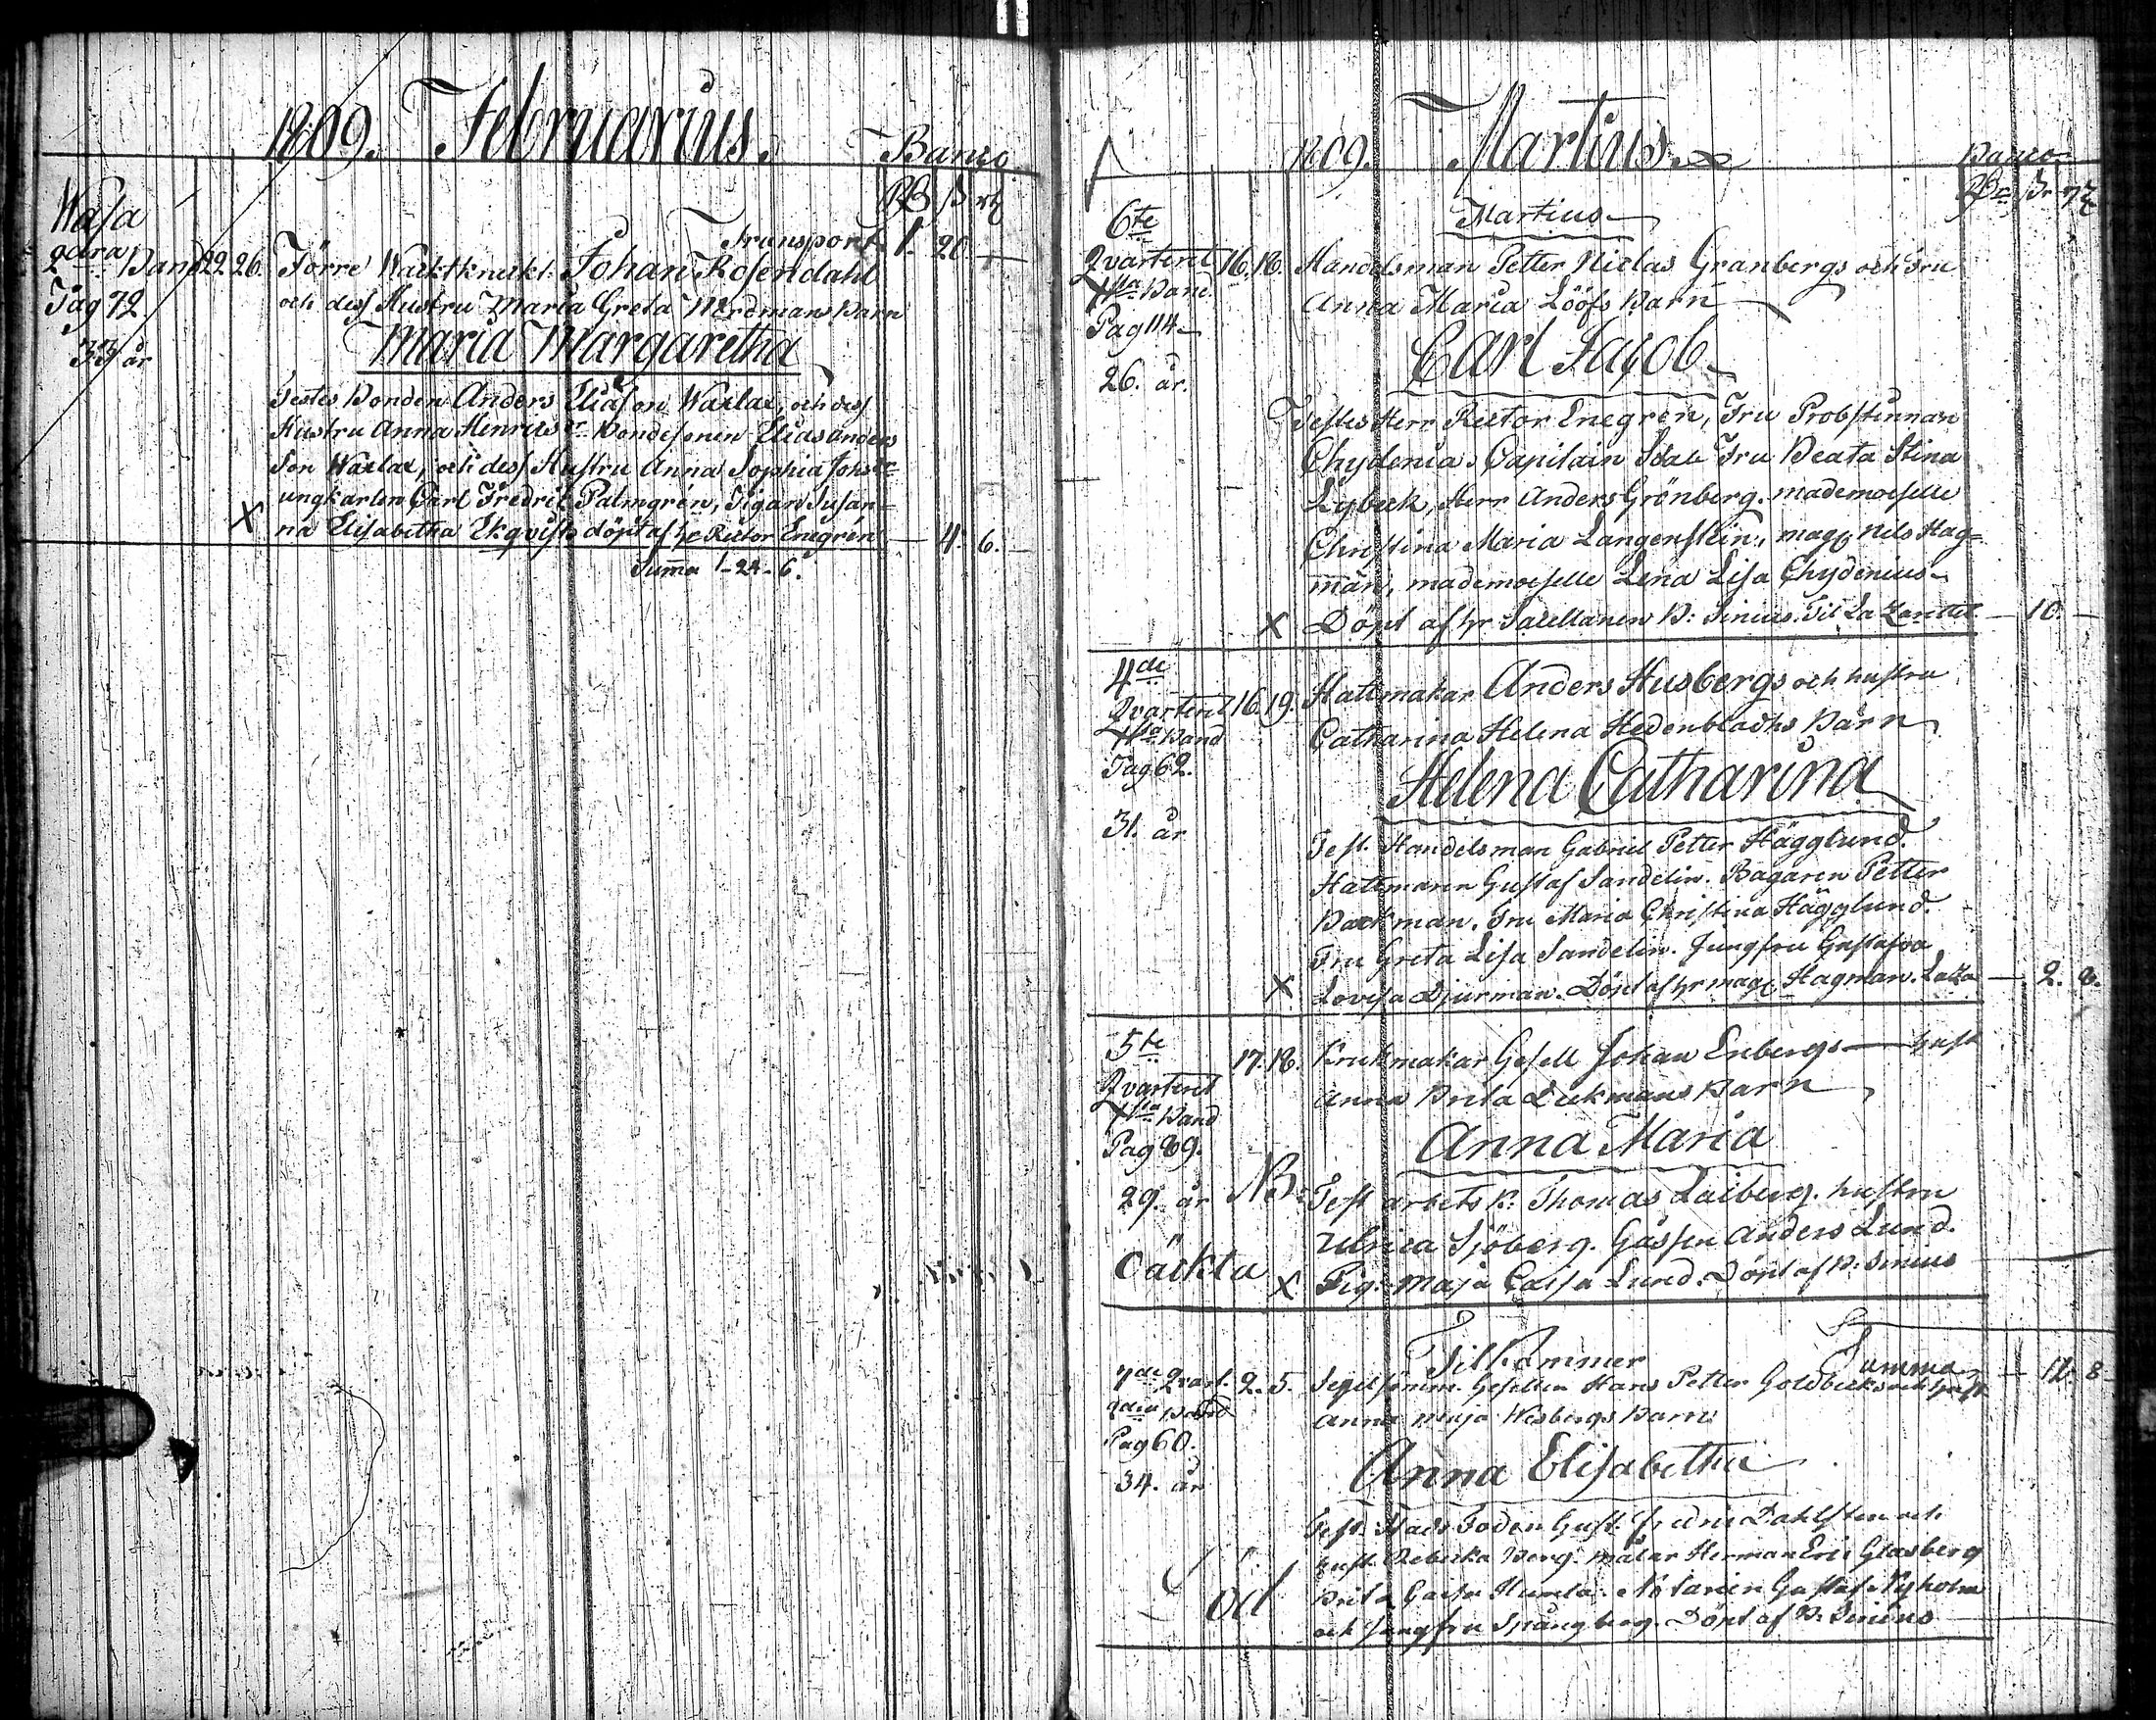 1809. Februarius.
Banco
RD ß rs
Wasa
2dra Band
Pag 72
33 år
Transport 1. 20. —
22. 26. Förre Wacktknekt: Johan Rosendahl
och dess Hustru Maria Greta Nordmans Barn
Maria Margaretha
Testes Bonden Anders Eliasson Waxlax, och dess
Hustru Anna Henrics dr Bondesonen Elias Anders
Son Waxlax, och dess Hustru Anna Sophia Johs dr
ungkarlen Carl Fredric Palmgrén, Pigan Susan=
X na Elisabetha Ekqvist. döpt af hr Rector Enegrén — 4. 6. —
Summa 1 - 24 - 6.
1809. Martius.
Banco
RD ß rs
Martius
6te
Qvarteret
1sta Band
Pag 114
26. år.
16. 18. Handelsman Petter Niclas Granbergs och fru
Anna Maria Lööfs Barn
Carl Jacob
Testes Herr Rector Enegrén, Fru Probstinnan
Chydenia. Capitain Fru Beata Stina
Lybeck, Herr Anders Grönberg. mademoiselle
Christina Maria Langenstein, mag. Nils Hag=
man, mademoiselle Lena Lisa Chydenius
X Döpt af hr Sacellanen B: Sinius. Til Lazarettet — 10. —
4de
Qvarteret
1sta Band
Pag 62.
31. år
16. 19. Hattmakar Anders Husbergs och hustru
Catharina Helena Hedenbladhs Barn
Helena Catharina
Test. Handelsman Gabriel Petter Hägglund.
Hattmaren Gustaf Sandelin. Bagaren Petter
Backman. Fru Maria Christina Hägglund.
Fru Greta Lisa Sandelin. Jungfru Gustafva
X Lovisa Djurman. Döpt af hr mag. Hagman. Laza — 2. 8.
5te
Qvarteret
1sta Band
Pag 89.
29. år
Oäckta
17. 18. Krukmakar Gesell Johan Enbergs — hust
Anna Brita Lukmans Barn
Anna Maria
NB: Test arbets k: Thomas Laiberg. hustru
Ulrica Sjöberg. Gossen Anders Lund.
X Pig. Maja Caisa Lund. Döpt af B: Sinius
Tilkommer
Summa — 12. 8
7de Qvart.
2dra Band
Pag 60.
34. år
2. 5. Segelsömm. Gesellen Hans Petter Goldbecks och hust
Anna Maja Wisbergs Barn
Anna Elisabetha
Test. Stads Foden Gust. Fredric Dahlsten och
hust. Rebecka Berg. målar Herman Eric Glasberg
Brita Caisa Humla. Notarien Gustaf Nyholm
och jungfru Spångberg. Döpt af B: Sinius
Död